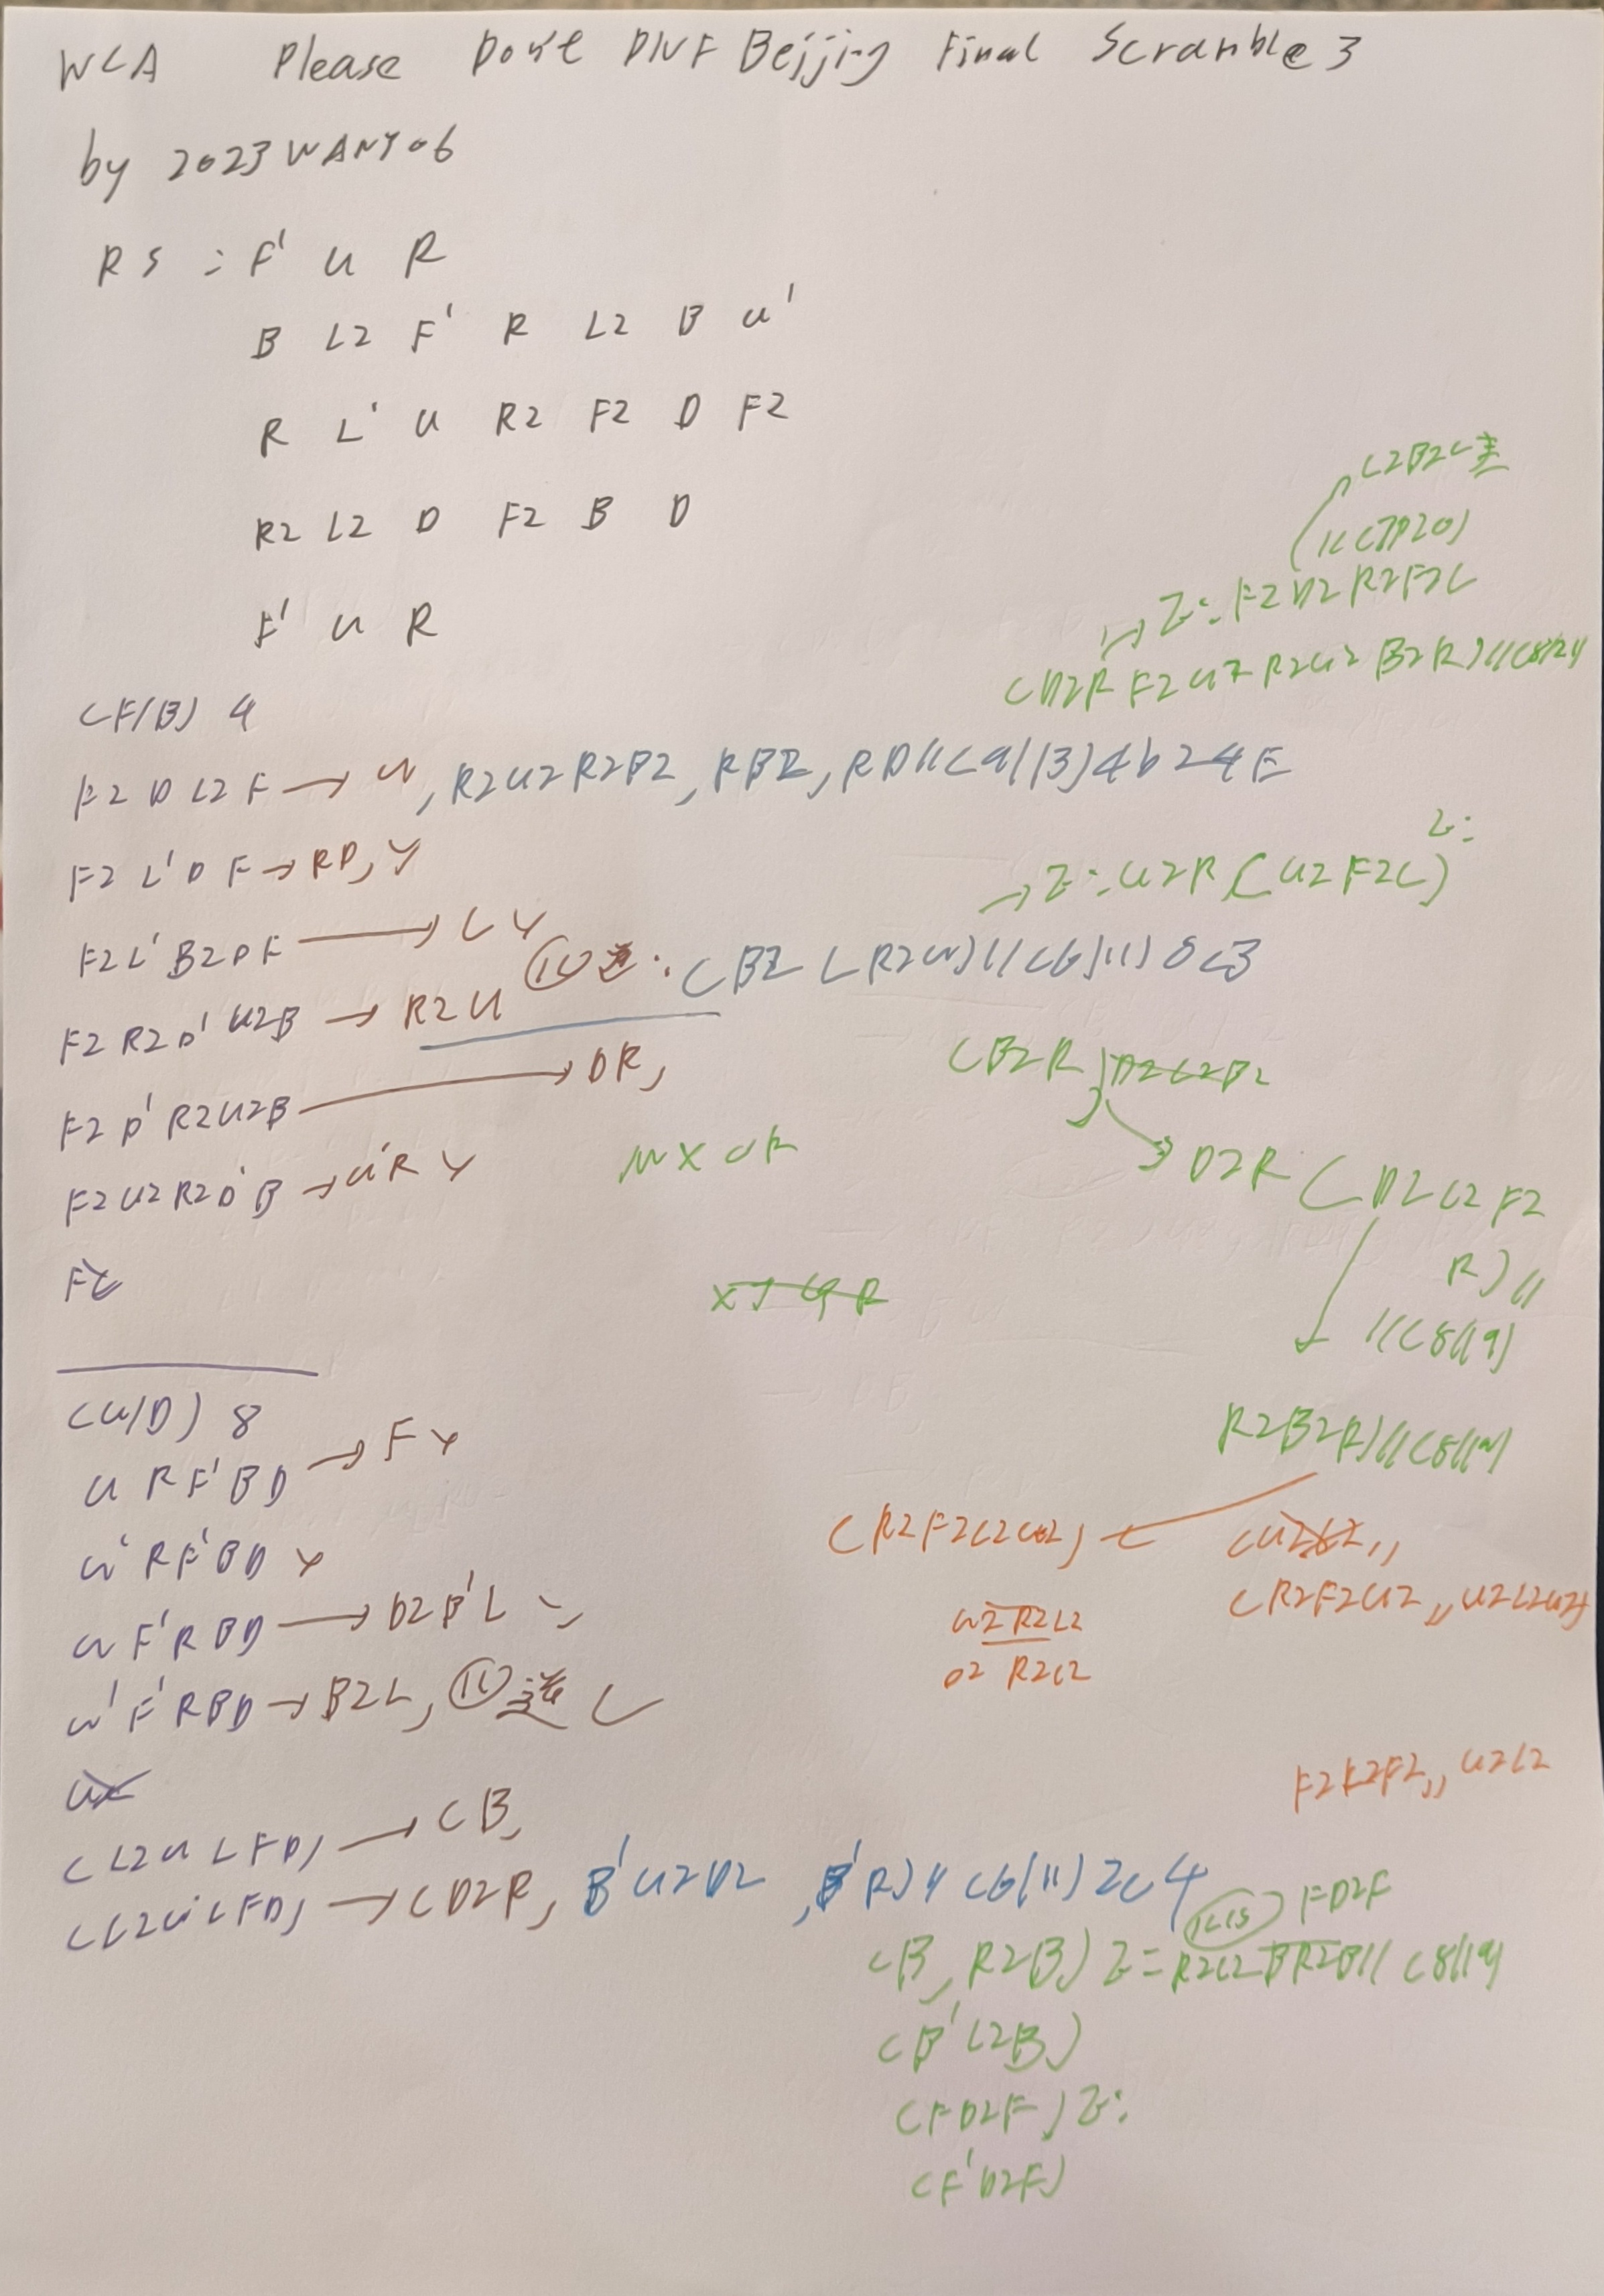 WCA Please Don't DNF Beijing Final Scramble 3
by 2023WANY06
RS : F' U R
B L2 F' R L2 B U'
R L' U R2 F2 D F2
R2 L2 D F2 B D
F' U R
(F/B) 4
F2 D L2 F → U, R2U2R2B2, RBR, RD//(9/13) 4b24E
F2 L' D F → RD, Y
F2 L' B2 D F → LY
F2 R2 D' U2 B → R2 U
F2 D' R2 U2 B → DR,
F2 U2 R2 D' B → U'R Y
(U/D) 8
U R F' B D → F Y
U' R F' B D Y
U F' R B D → D2 B' L
U' F' R B D → B2L,
(L2 U L F D) → (B,
(L2 U' L F D) → (D2R, B' U2 D2, B' R)//(6/11) 2c4
(D2R F2 U2 R2 U2 B2 R)
Z: F2 D2 R2 F2 L
→ Z: U2R (U2F2L)
(B2R)
D2R (D2L2F2
R)//
//(8/19)
R2B2R)//(8/19)
(R2F2L2U2)
(R2F2U2,, U2L2U2)
U2 R2L2
D2 R2L2
F2R2F2,, U2L2
FD2F
(B, R2B) Z= R2L2BR2B//(8/19)
(B' L2B)
(FD2F) Z:
(F'D2F)